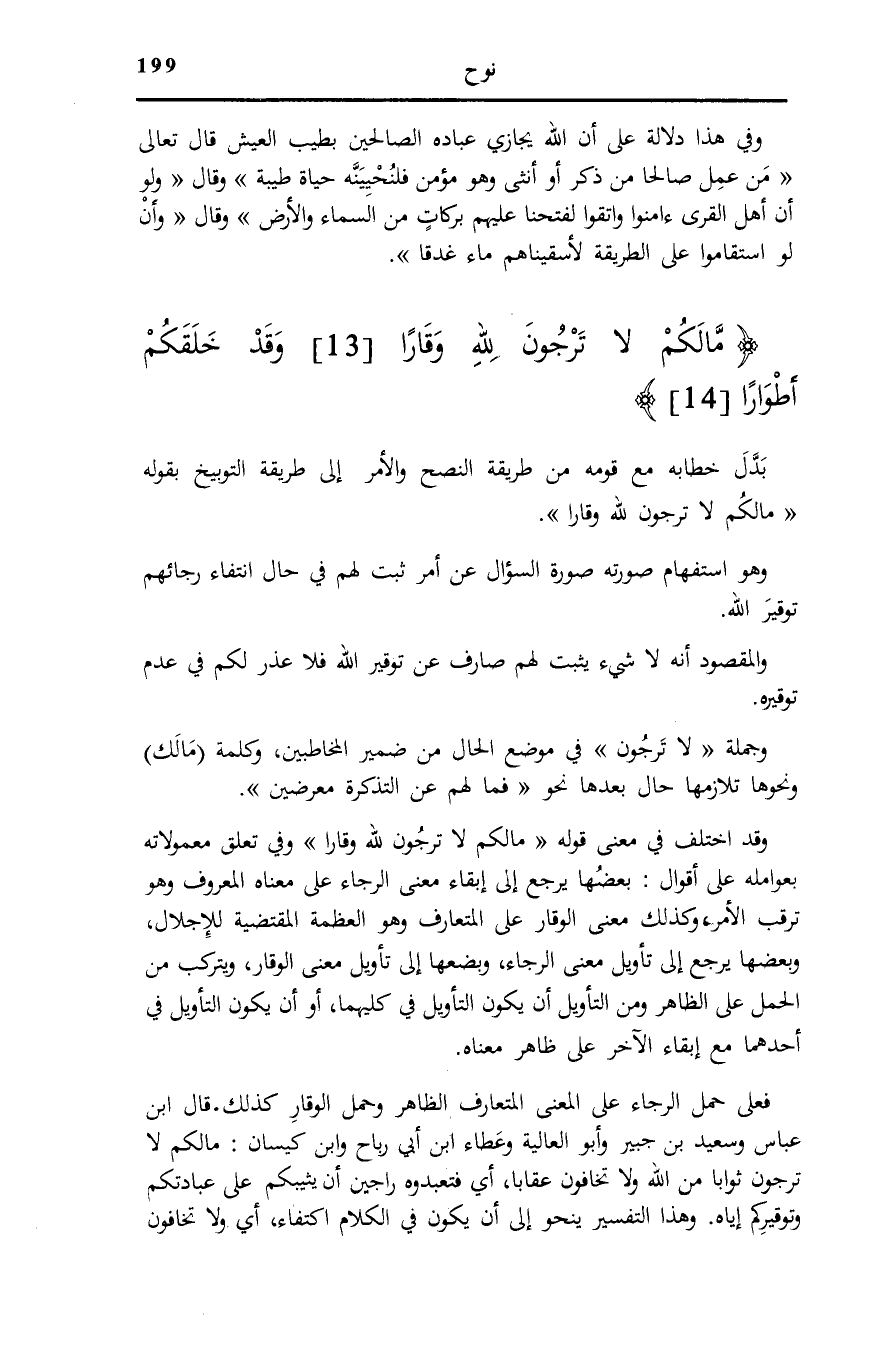 نوح 199
وفي هذا دلالة على أن الله يجازي عباده الصالحين بطيب العيش قال تعالى
« مَن عمِل صالحا من ذكر أو أنثى وهو مؤمن فلنُحْيِيَنَّه حياة طيبة » وقال « ولو
أن أهل القرى ءامنوا واتقوا لفتحنا عليهم بركاتٍ من السماء والأرض » وقال « وأنْ
لو استقاموا على الطريقة لأسقيناهم ماء غدقا ».
﴿ مَّالَكُمْ لا تَرْجُونَ لِلهِ وَقَارًا [13] وَقَدْ خَلَقَكُمْ
أَطْوَارًا [14] ﴾
بَدَّلَ خطابه مع قومه من طريقة النصح والأمر إلى طريقة التوبيخ بقوله
« مالكُم لا ترجون لله وقارا ».
وهو استفهام صورته صورة السؤال عن أمر ثبت لهم في حال انتفاء رجائهم
توقيرَ الله.
والمقصود أنه لا شيء يثبت لهم صارف عن توقير الله فلا عذر لكم في عدم
توقيره.
وجملة « لا تَرجُون » في موضع الحال من ضمير المخاطبين، وكلمة (مَالَك)
ونحوها تلازمها حال بعدها نحو « فما لهم عن التذكرة معرضين ».
وقد اختلف في معنى قوله « مالكم لا ترجُون لله وقارا » وفي تعلق معمولاته
بعوامله على أقوال : بعضُها يرجع إلى إبقاء معنى الرجاء على معناه المعروف وهو
ترقب الأمر، وكذلك معنى الوقار على المتعارف وهو العظمة المقتضية للإجلال،
وبعضها يرجع إلى تأويل معنى الرجاء، وبضعها إلى تأويل معنى الوقار، ويتركب من
الحمل على الظاهر ومن التأويل أن يكون التأويل في كليهما، أو أن يكون التأويل في
أحدهما مع إبقاء الآخر على ظاهر معناه.
فعلى حمل الرجاء على المعنى المتعارف الظاهر وحمل الوقارِ كذلك. قال ابن
عباس وسعيد بن جبير وأبو العالية وعَطاء ابن أبي رباح وابن كيسان : مالكم لا
ترجون ثوابا من الله ولا تخافون عقابا، أي فتعبدوه راجين أن يثيبكم على عبادتكم
وتوقيرِكم إياه. وهذا التفسير ينحو إلى أن يكون في الكلام اكتفاء، أي ولا تخافون